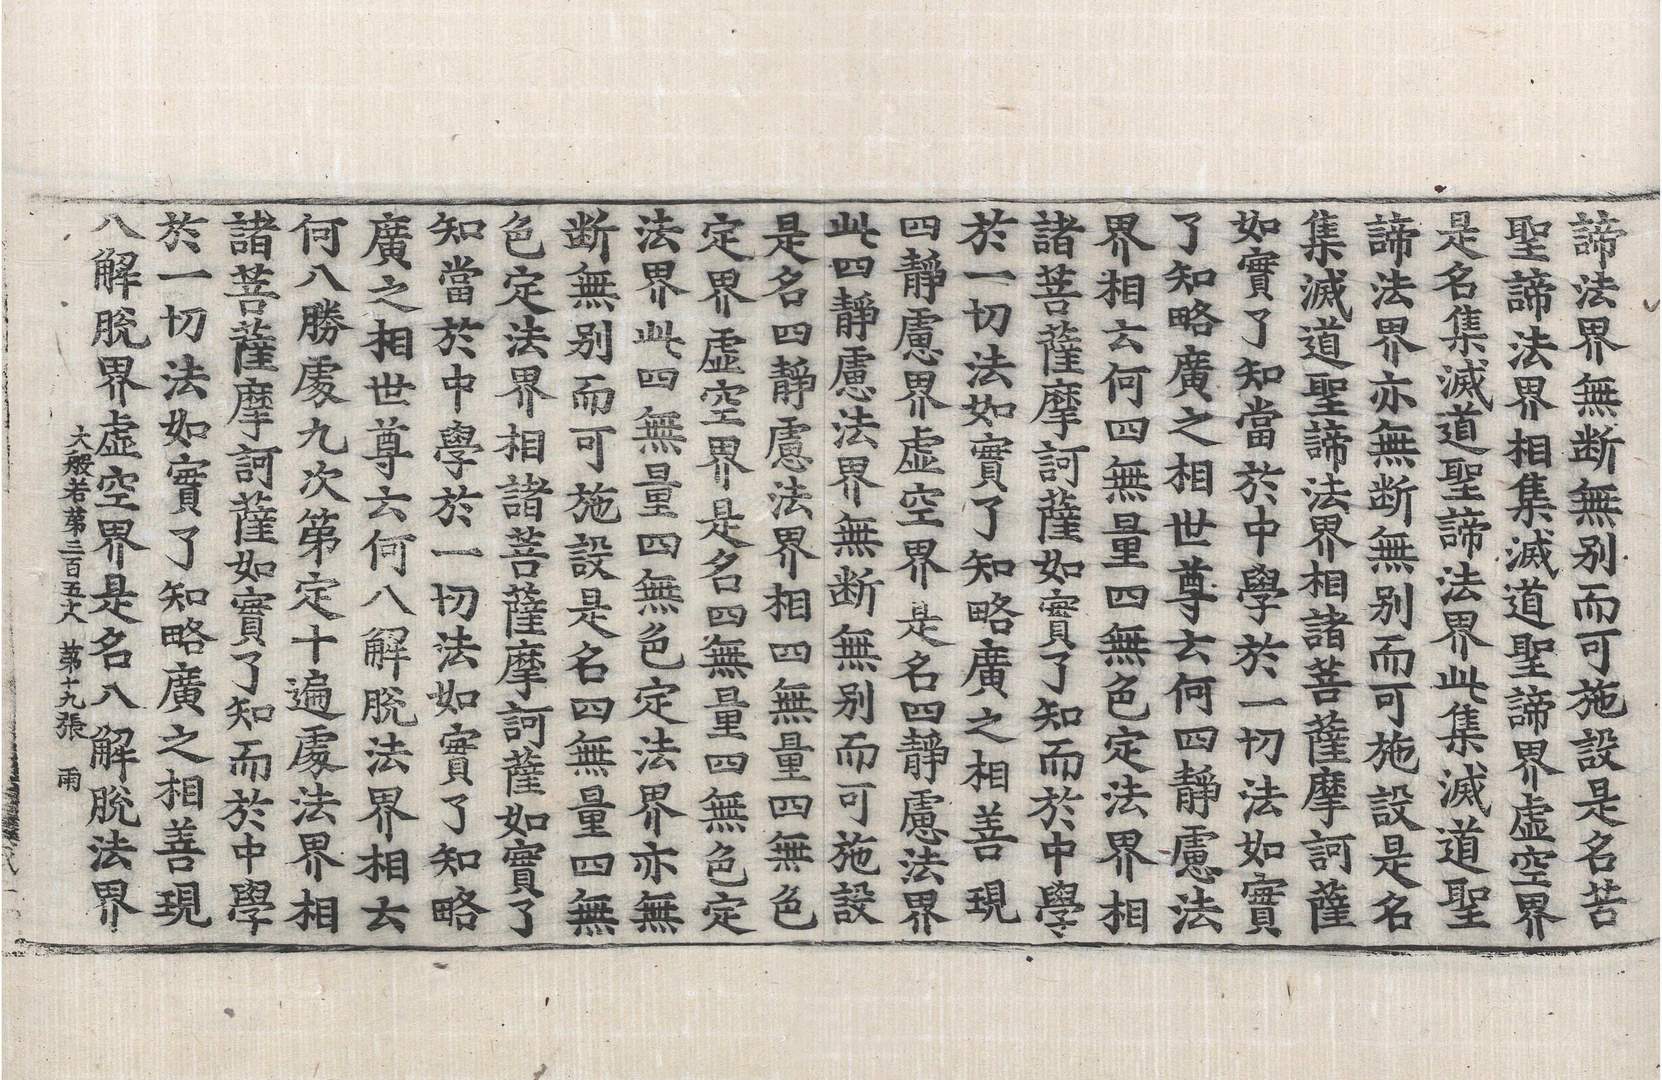 諦法界無断無别而可施設是名苦
聖諦法界相集滅道聖諦界虚空界
是名集滅道聖諦法界此集滅道聖
諦法界亦無断無别而可施設是名
集滅道聖諦法界相諸菩薩摩訶薩
如實了知當於中學於一切法如實
了知略廣之相世尊云何四靜慮法
界相云何四無量四無色定法界相
諸菩薩摩訶薩如實了知而於中學
於一切法如實了知略廣之相善現
四靜慮界虚空界是名四靜慮法界
此四靜慮法界無断無别而可施設
是名四靜慮法界相四無量四無色
定界虚空界是名四無量四無色定
法界此四無量四無色定法界亦無
断無别而可施設是名四無量四無
色定法界相諸菩薩摩訶薩如實了
知當於中學於一切法如實了知略
廣之相世尊云何八解脫法界相云
何八勝處九次第定十遍處法界相
諸菩薩摩訶薩如實了知而於中學
於一切法如實了知略廣之相善現
八解脫界虚空界是名八解脫法界
大般若第三百五六 第十九張 雨